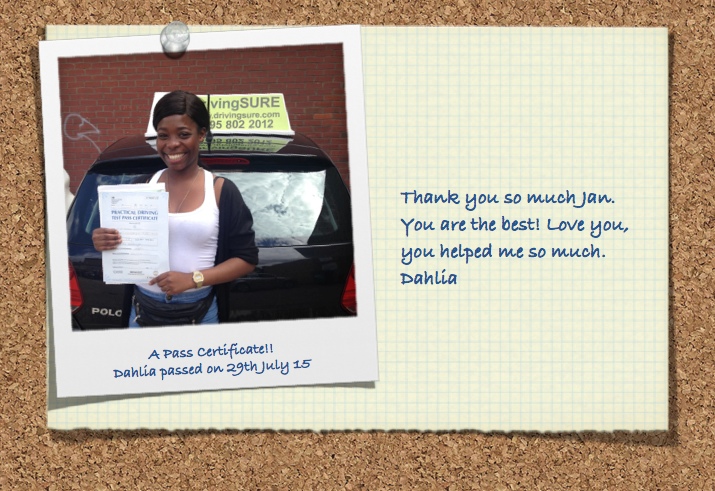 vingSURE
.drivingsure.com
95 802 2012
PRACTICAL DRIVING
TEST PASS CERTIFICATE
POLO
A Pass Certificate!!
Dahlia passed on 29th July 15
Thank you so much Jan.
You are the best! Love you,
you helped me so much.
Dahlia